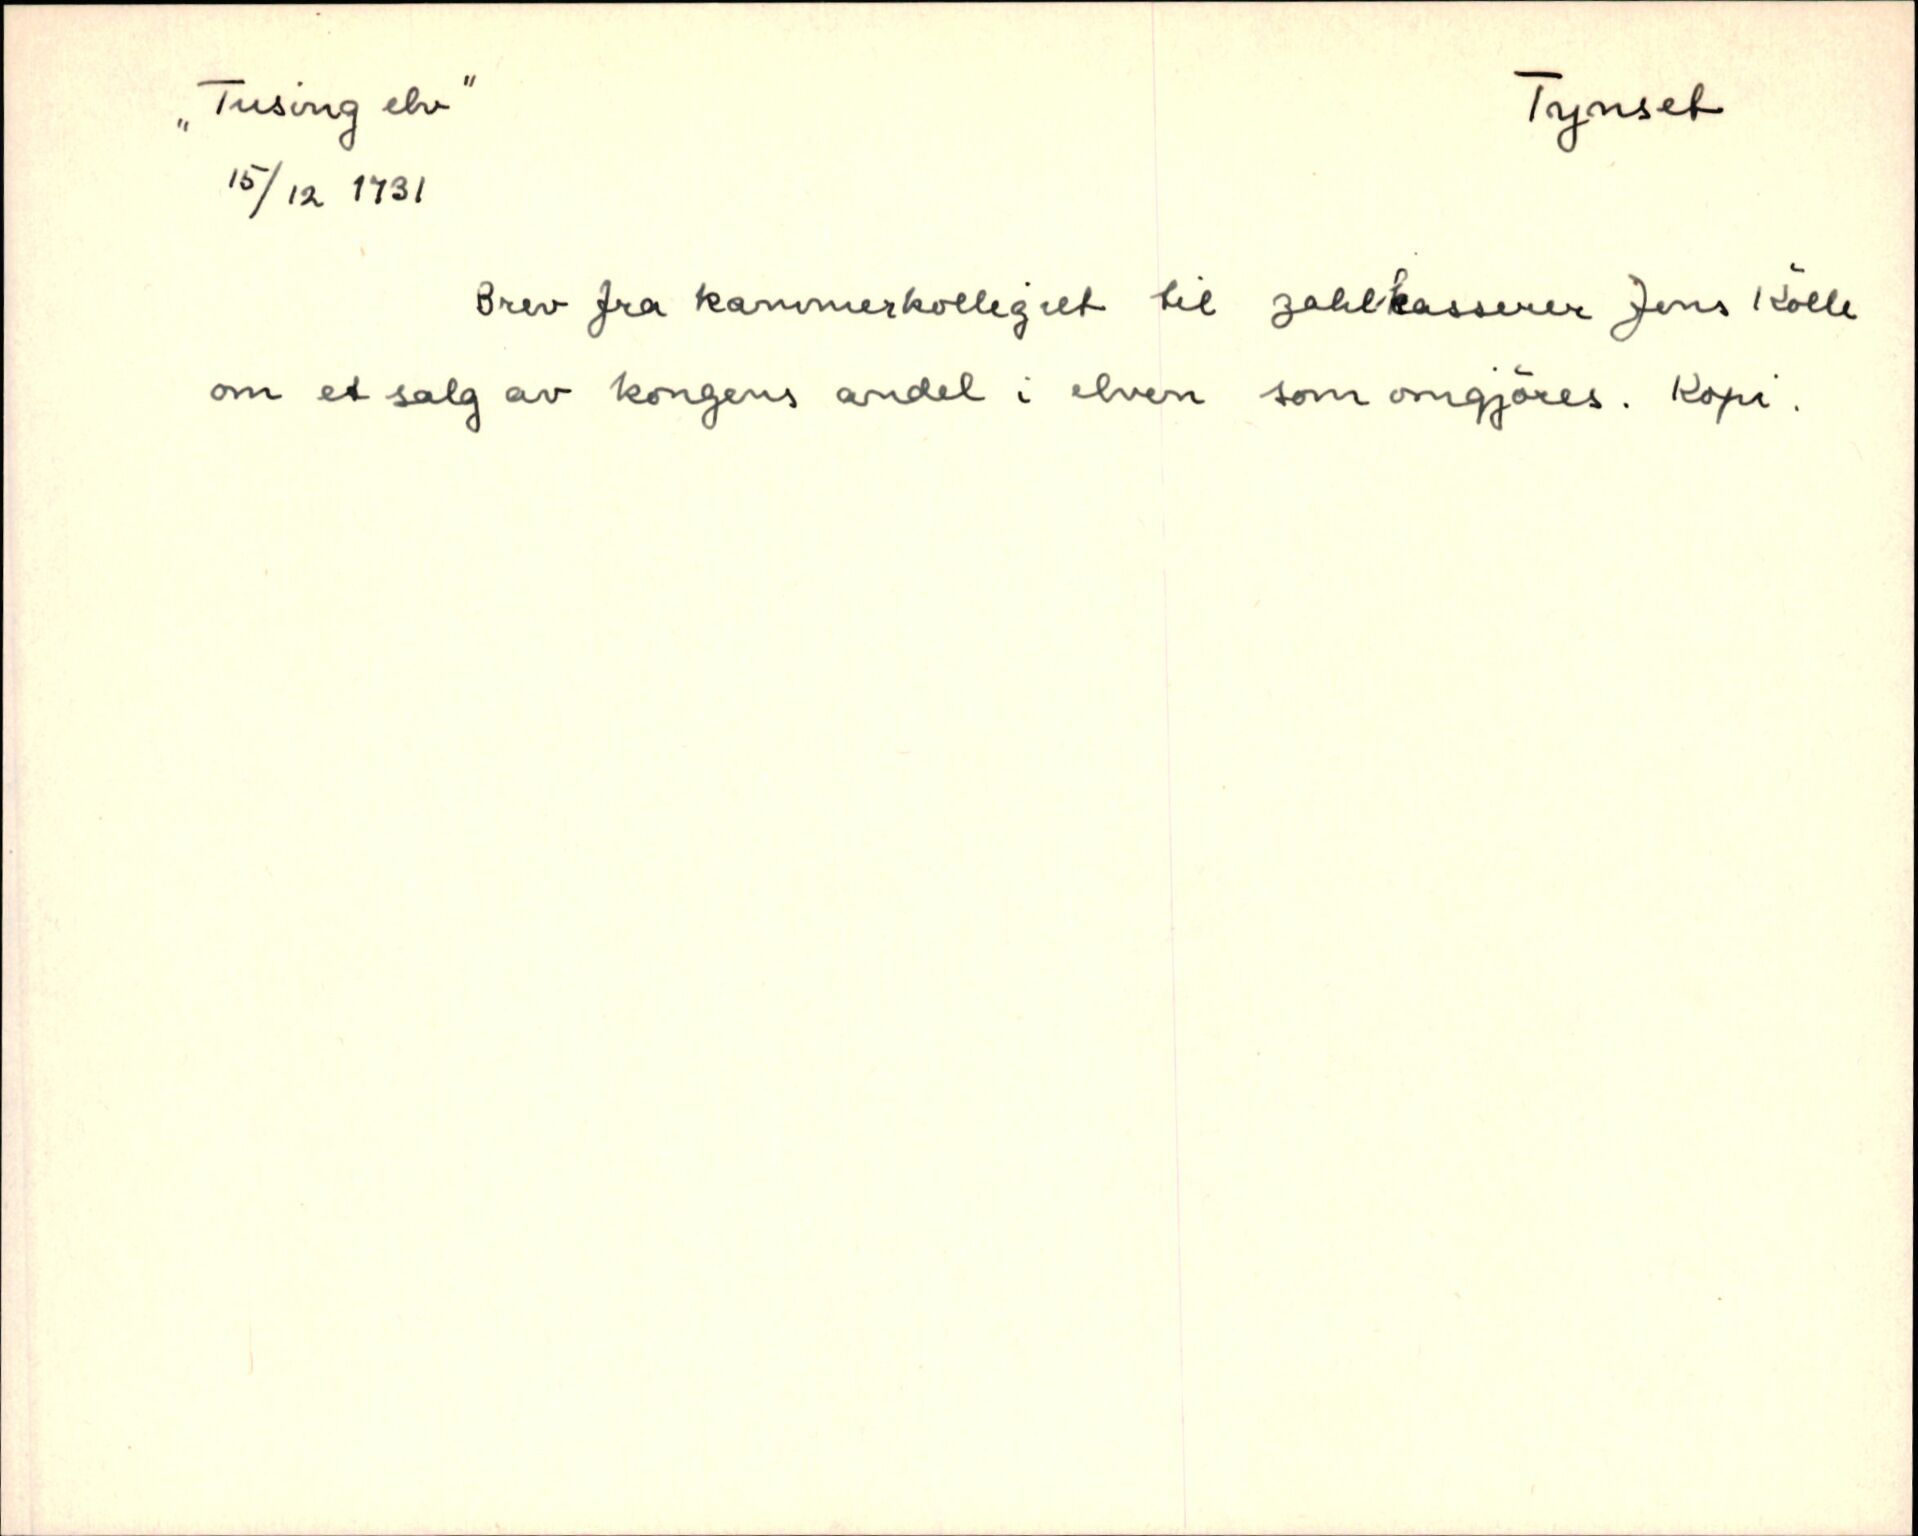 „Tusing elv" Tynset
15/12 1731
Brev fra kammerkollegiet til zahlkasserer Jens Kölle
om et salg av kongens andel i elven som omgjöres. Kopi.